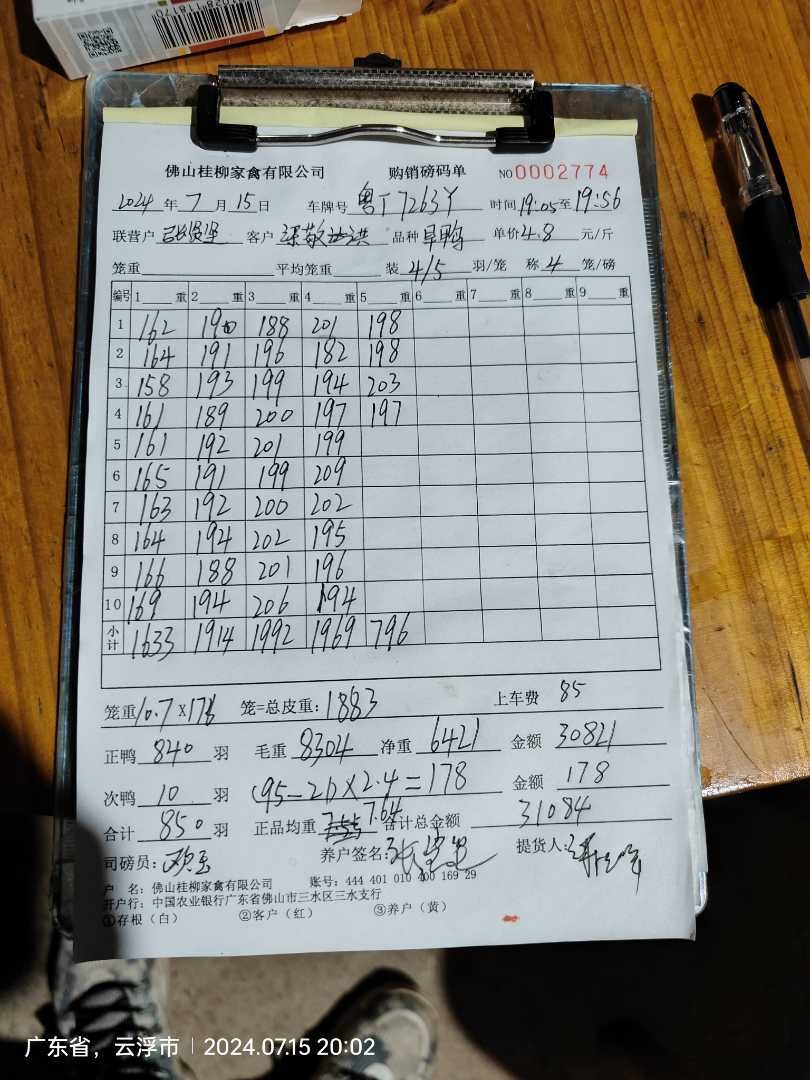 佛山桂柳家禽有限公司 购销磅码单 NO 0002774
2024 年 7 月 15 日 车牌号 粤T7263Y 时间 19:05 至 19:56
联营户 客户 品种 旱鸭 单价 4.8 元/斤
笼重 平均笼重 装 4/5 羽/笼 称 4 笼/磅
编号 1 重 2 重 3 重 4 重 5 重 6 重 7 重 8 重 9 重
1 162 190 188 201 198
2 164 191 196 182 198
3 158 193 199 194 203
4 161 189 200 197 197
5 161 192 201 199
6 165 191 199 209
7 163 192 200 202
8 164 194 202 195
9 166 188 201 196
10 169 194 206 194
小计 1633 1914 1992 1969 796
笼重 10.7 X 176 笼=总皮重: 1883 上车费 85
正鸭 840 羽 毛重 8304 净重 6421 金额 30821
次鸭 10 羽 (95-21)×2.4=178 金额 178
合计 850 羽 正品均重 7.64 合计总金额 31084
司磅员: 养户签名: 提货人:
户 名: 佛山桂柳家禽有限公司 账号: 444 401 010 400 169 29
开户行: 中国农业银行广东省佛山市三水区三水支行
①存根(白) ②客户(红) ③养户(黄)
广东省，云浮市 2024.07.15 20:02